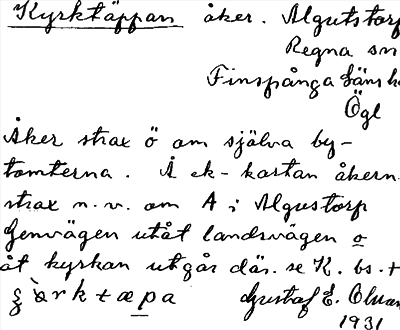 Kyrktäppan åker. Algutstorp
Regna sn
Finspånga läns h
Ögl
Åker strax ö om själva by-
tomterna. Å ek-kartan åkern
strax n.v. om A i Algustorp
Genvägen utåt landsvägen o
åt kyrkan utgår där. se K. bs. +
Gustaf E. Olsson
1931